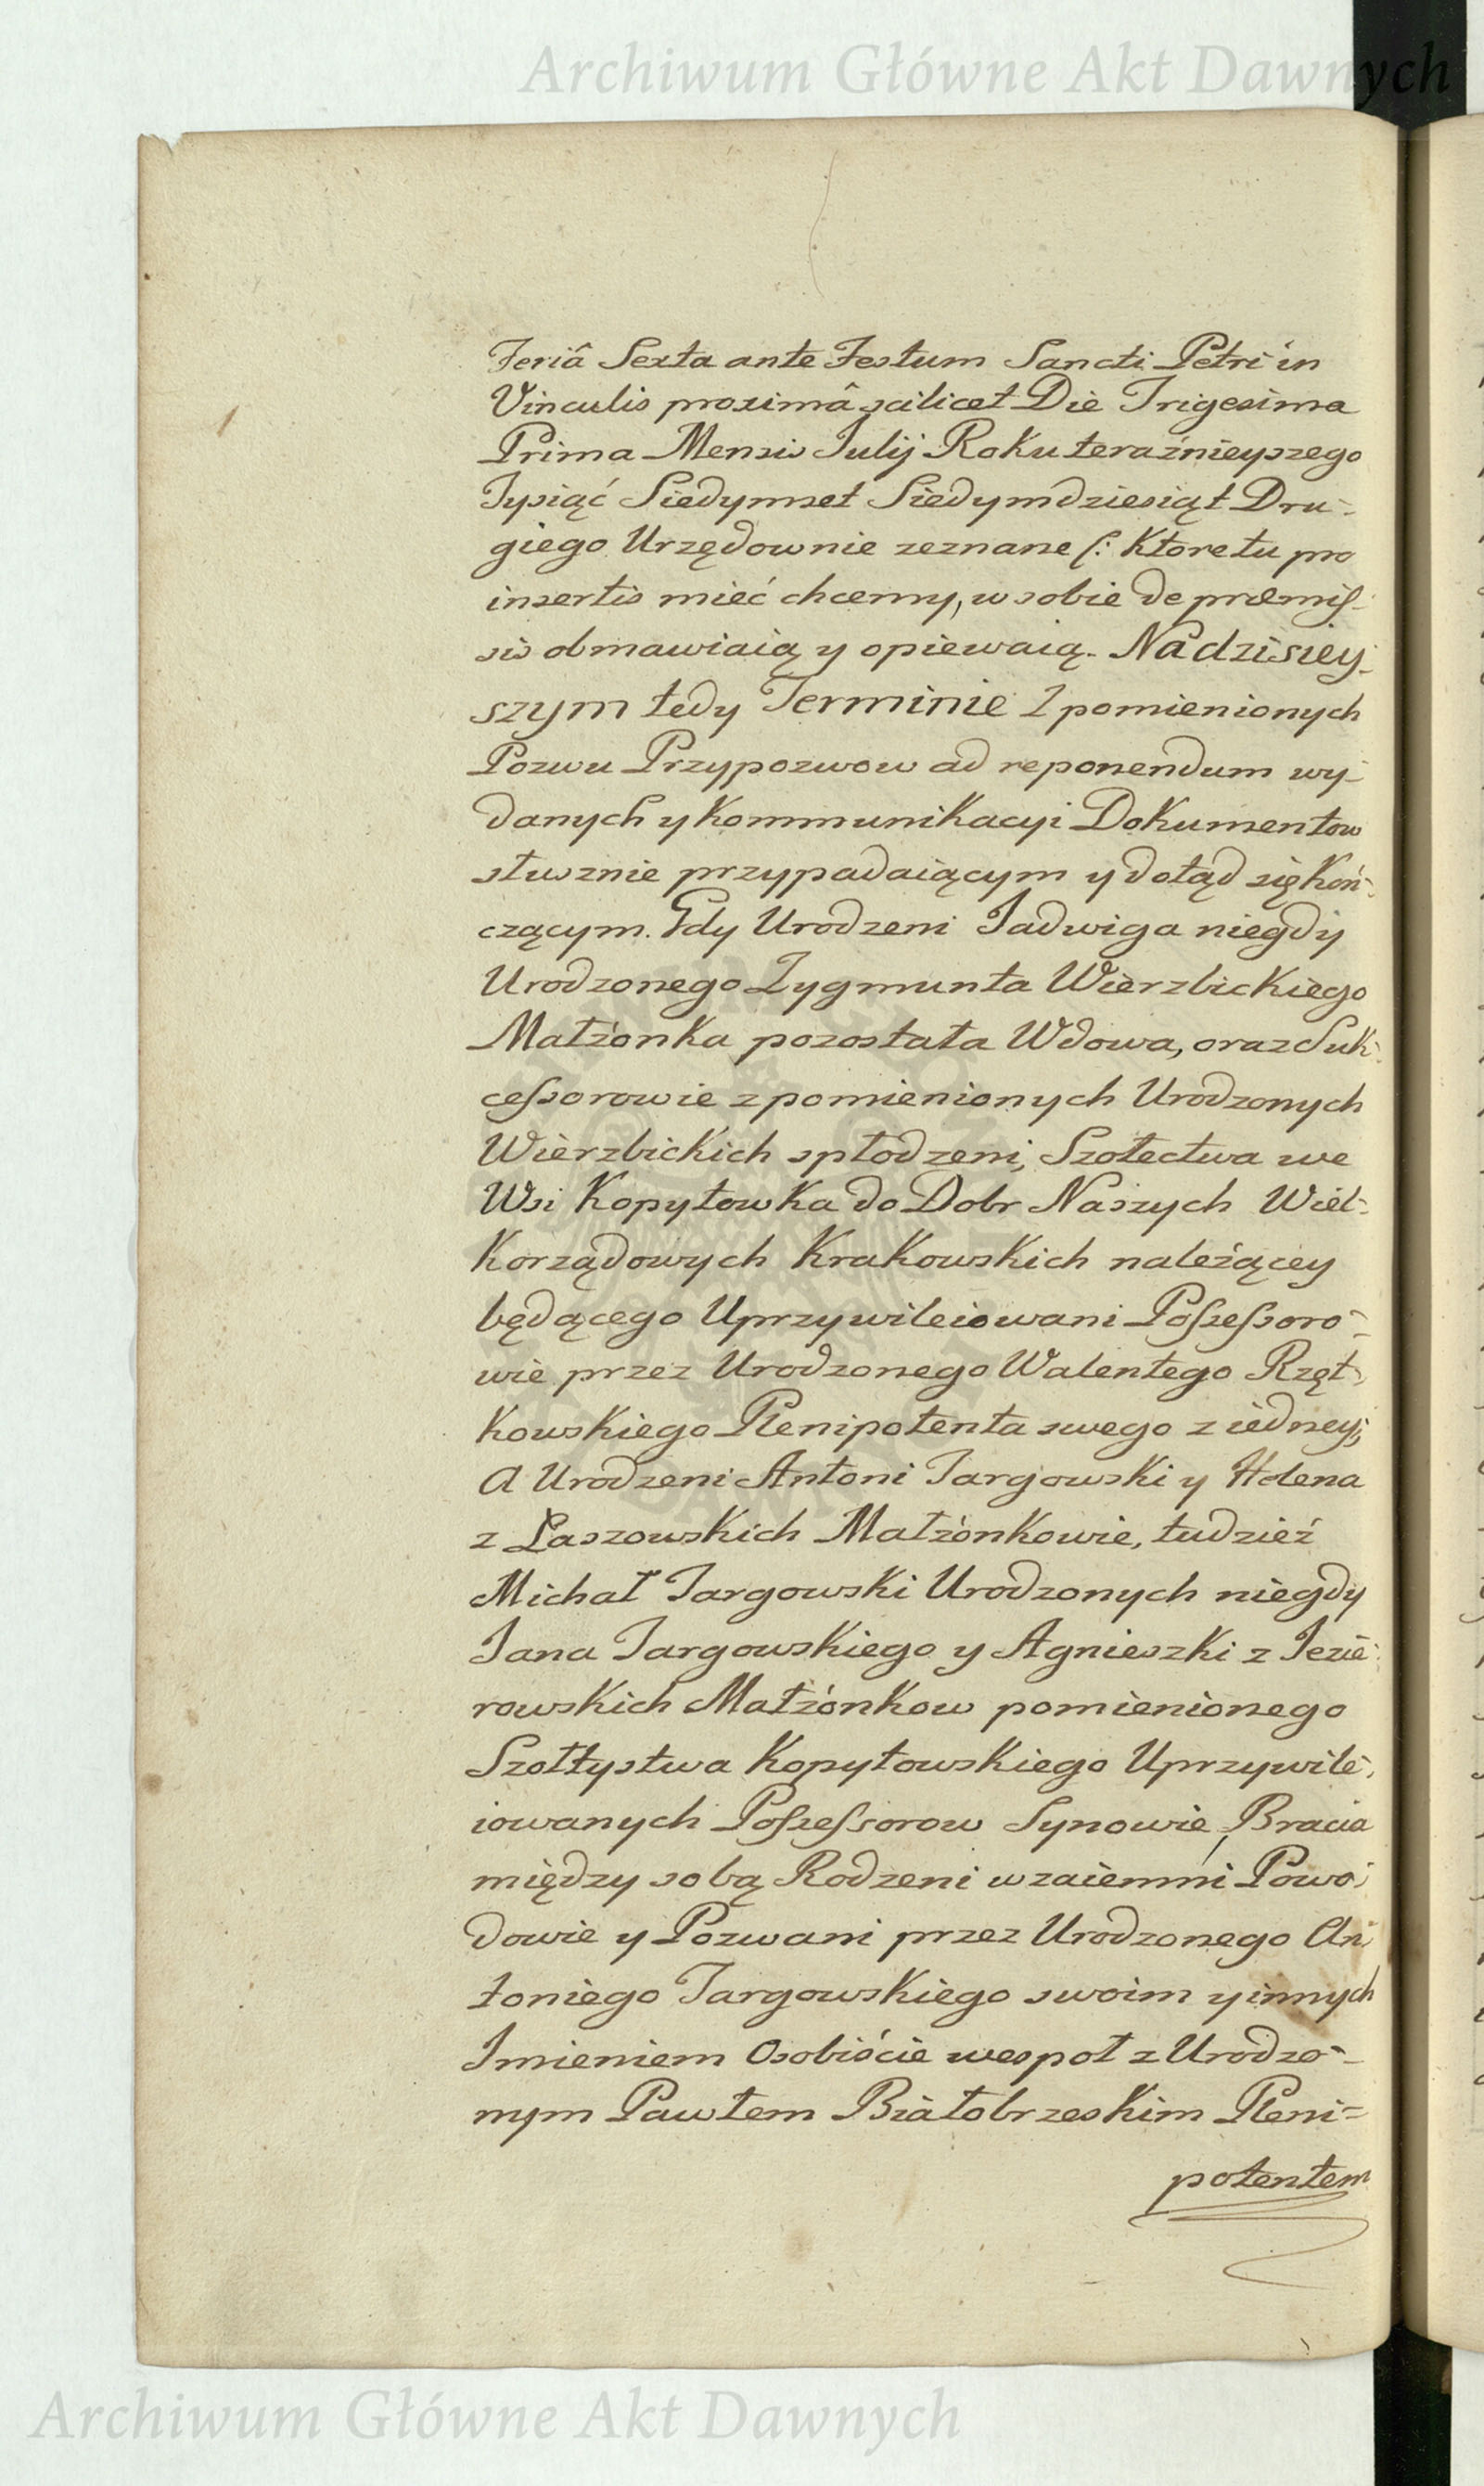 Archiwum Główne Akt Dawnych
Feriâ Sexta ante Festum Sancti Petri in
Vinculis proximâ scilicet Die Trigesima
Prima Mensis Julij Roku teraźnieyszego
Tysiąć Siedymset Siedymdziesiąt Dru-
giego Urzędownie zeznane /: Ktore tu pro
insertis mieć chcemy, w sobie de præmiſ-
sis obmawiaią y opiewaią. Na dzisiey-
szym tedy Terminie z pomienionych
Pozwu Przypozwow ad reponendum wy-
danych y Kommunikacyi Dokumentow
słusznie przypadaiącym y dotąd się Koń-
czącym. Gdy Urodzeni Jadwiga niegdy
Urodzonego Zygmunta Wierzbickiego
Małżonka pozostała Wdowa, oraz Suk-
ceſsorowie z pomienionych Urodzonych
Wierzbickich spłodzeni, Szołectwa we
Wsi Kopytowka do Dobr Naszych Wiel-
Korządowych Krakowskich należącey
będącego Uprzywileiowani Poſseſsoro-
wie przez Urodzonego Walentego Rzęt-
kowskiego Plenipotenta swego z iedney;
A Urodzeni Antoni Targowski y Helena
z Laszowskich Małżonkowie, tudzież
Michał Targowski Urodzonych niegdy
Jana Targowskiego y Agnieszki z Jezie-
rowskich Małżonkow pomienionego
Szołtystwa Kopytowskiego Uprzywile-
iowanych Poſseſsorow Synowie, Bracia
między sobą Rodzeni wzaiemni Powo-
dowie y Pozwani przez Urodzonego An-
toniego Targowskiego swoim y innych
Imieniem Osobiście wespoł z Urodzo-
nym Pawłem Białobrzeskim Pleni=
potentem
Archiwum Główne Akt Dawnych